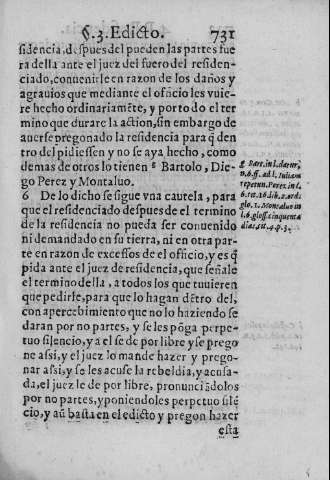 §. 3. Edicto. 731
sidencia, despues del pueden las partes fue
ra della ante el juez del fuero del residen-
ciado, conuenirle en razon de los daños y
agrauios que mediante el oficio les vuie-
re hecho ordinariamẽte, y por todo el ter
mino que durare la action, sin embargo de
auerse pregonado la residencia para q̃ den
tro del pidiessen y no se aya hecho, como
demas de otros lo tienen g Bartolo, Die-
go Perez y Montaluo.
6 De lo dicho se sigue vna cautela, para
que el residenciado despues de el termino
de la residencia no pueda ser conuenido
ni demandado en su tierra, ni en otra par-
te en razon de excessos de el oficio, y es q̃
pida ante el juez de residencia, que señale
el termino della, a todos los que tuuieren
que pedirle, para que lo hagan dẽtro del,
con apercebimiento que no lo haziendo se
daran por no partes, y se les põga perpe-
tuo silencio, y a el se de por libre y se prego
ne assi, y el juez lo mande hazer y prego-
nar assi, y se les acuse la rebeldia, y acusa-
da, el juez le de por libre, pronunciãdolos
por no partes, y poniendoles perpetuo silẽ
cio, y aũ basta en el edicto y pregon hazer
esta
g Bart. in l. datur,
n. 6. ff. ad l. Iuliam
repetun. Perez in l.
6. tit. 16. lib. 2. ord.
glo. 1. Montaluo in
l. 6. gloss. cinquenta
dias, tit. 4. p. 3.